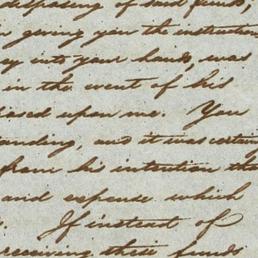 disposing of said funds,
giving you the instruction
into your hands, was
in the event of his
upon me. You
anding, and it was certain
from his intention tha
and expense which
If instead of
receiving these funds